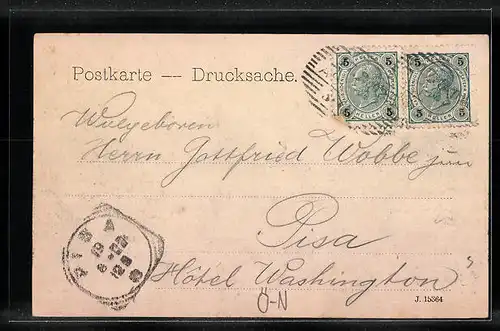 Postkarte — Drucksache.
5 5 5 5
HELLER
Wolgeboren
Herrn Gottfried Wobbe jun
Pisa
Hôtel Washington
PISA
Ö-N
J. 15364